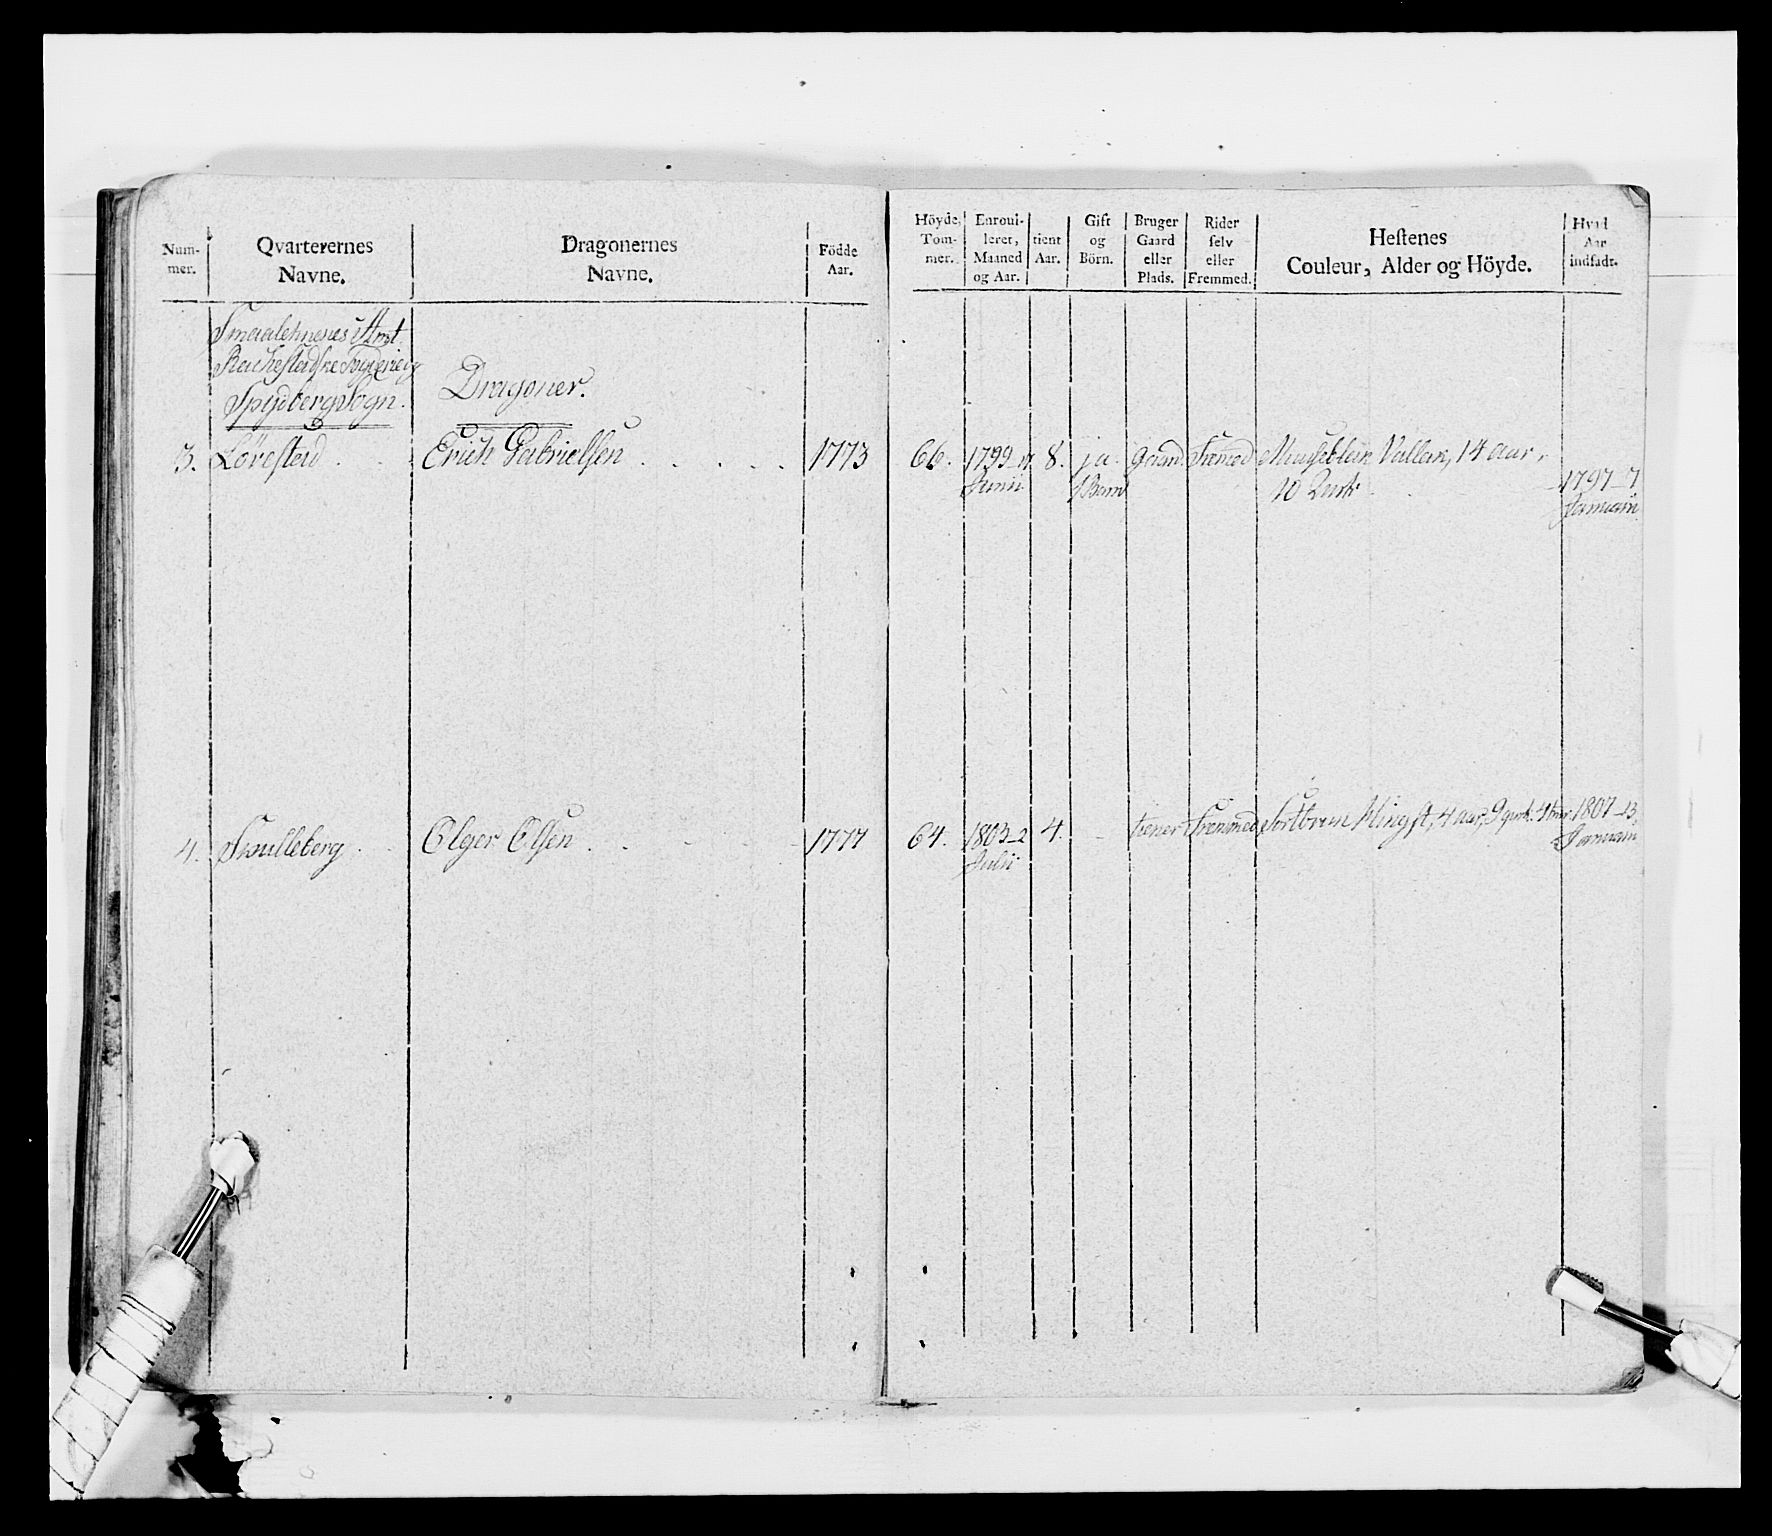 Num-
mer.
Qvarterernes
Navne.
Dragonernes
Navne.
Födde
Aar.
Höyde,
Tom-
mer.
Enroul-
leret,
Maaned
og Aar.
tient
Aar.
Gift
og
Börn.
Bruger
Gaard
eller
Plads.
Rider
selv
eller
Fremmed.
Hestenes
Couleur, Alder og Höyde.
Hvad
Aar
indsadt.
Smaalehnenes Amt
Spydberg Sogn.
Dragoner.
3. Lövestad Erich Gabrielsen 1773 66. 1799 17 8. ja. gaard Fremed Vallak, 14 aar, 1797 7
Junii 1 Barn 10 Januarii
4. Skulleberg Olger Olsen 1777 64. 1803 2 4. tiener Fremmed Sortbrun Hingst, 4 aar, 9 1807 13
Julii Januarii